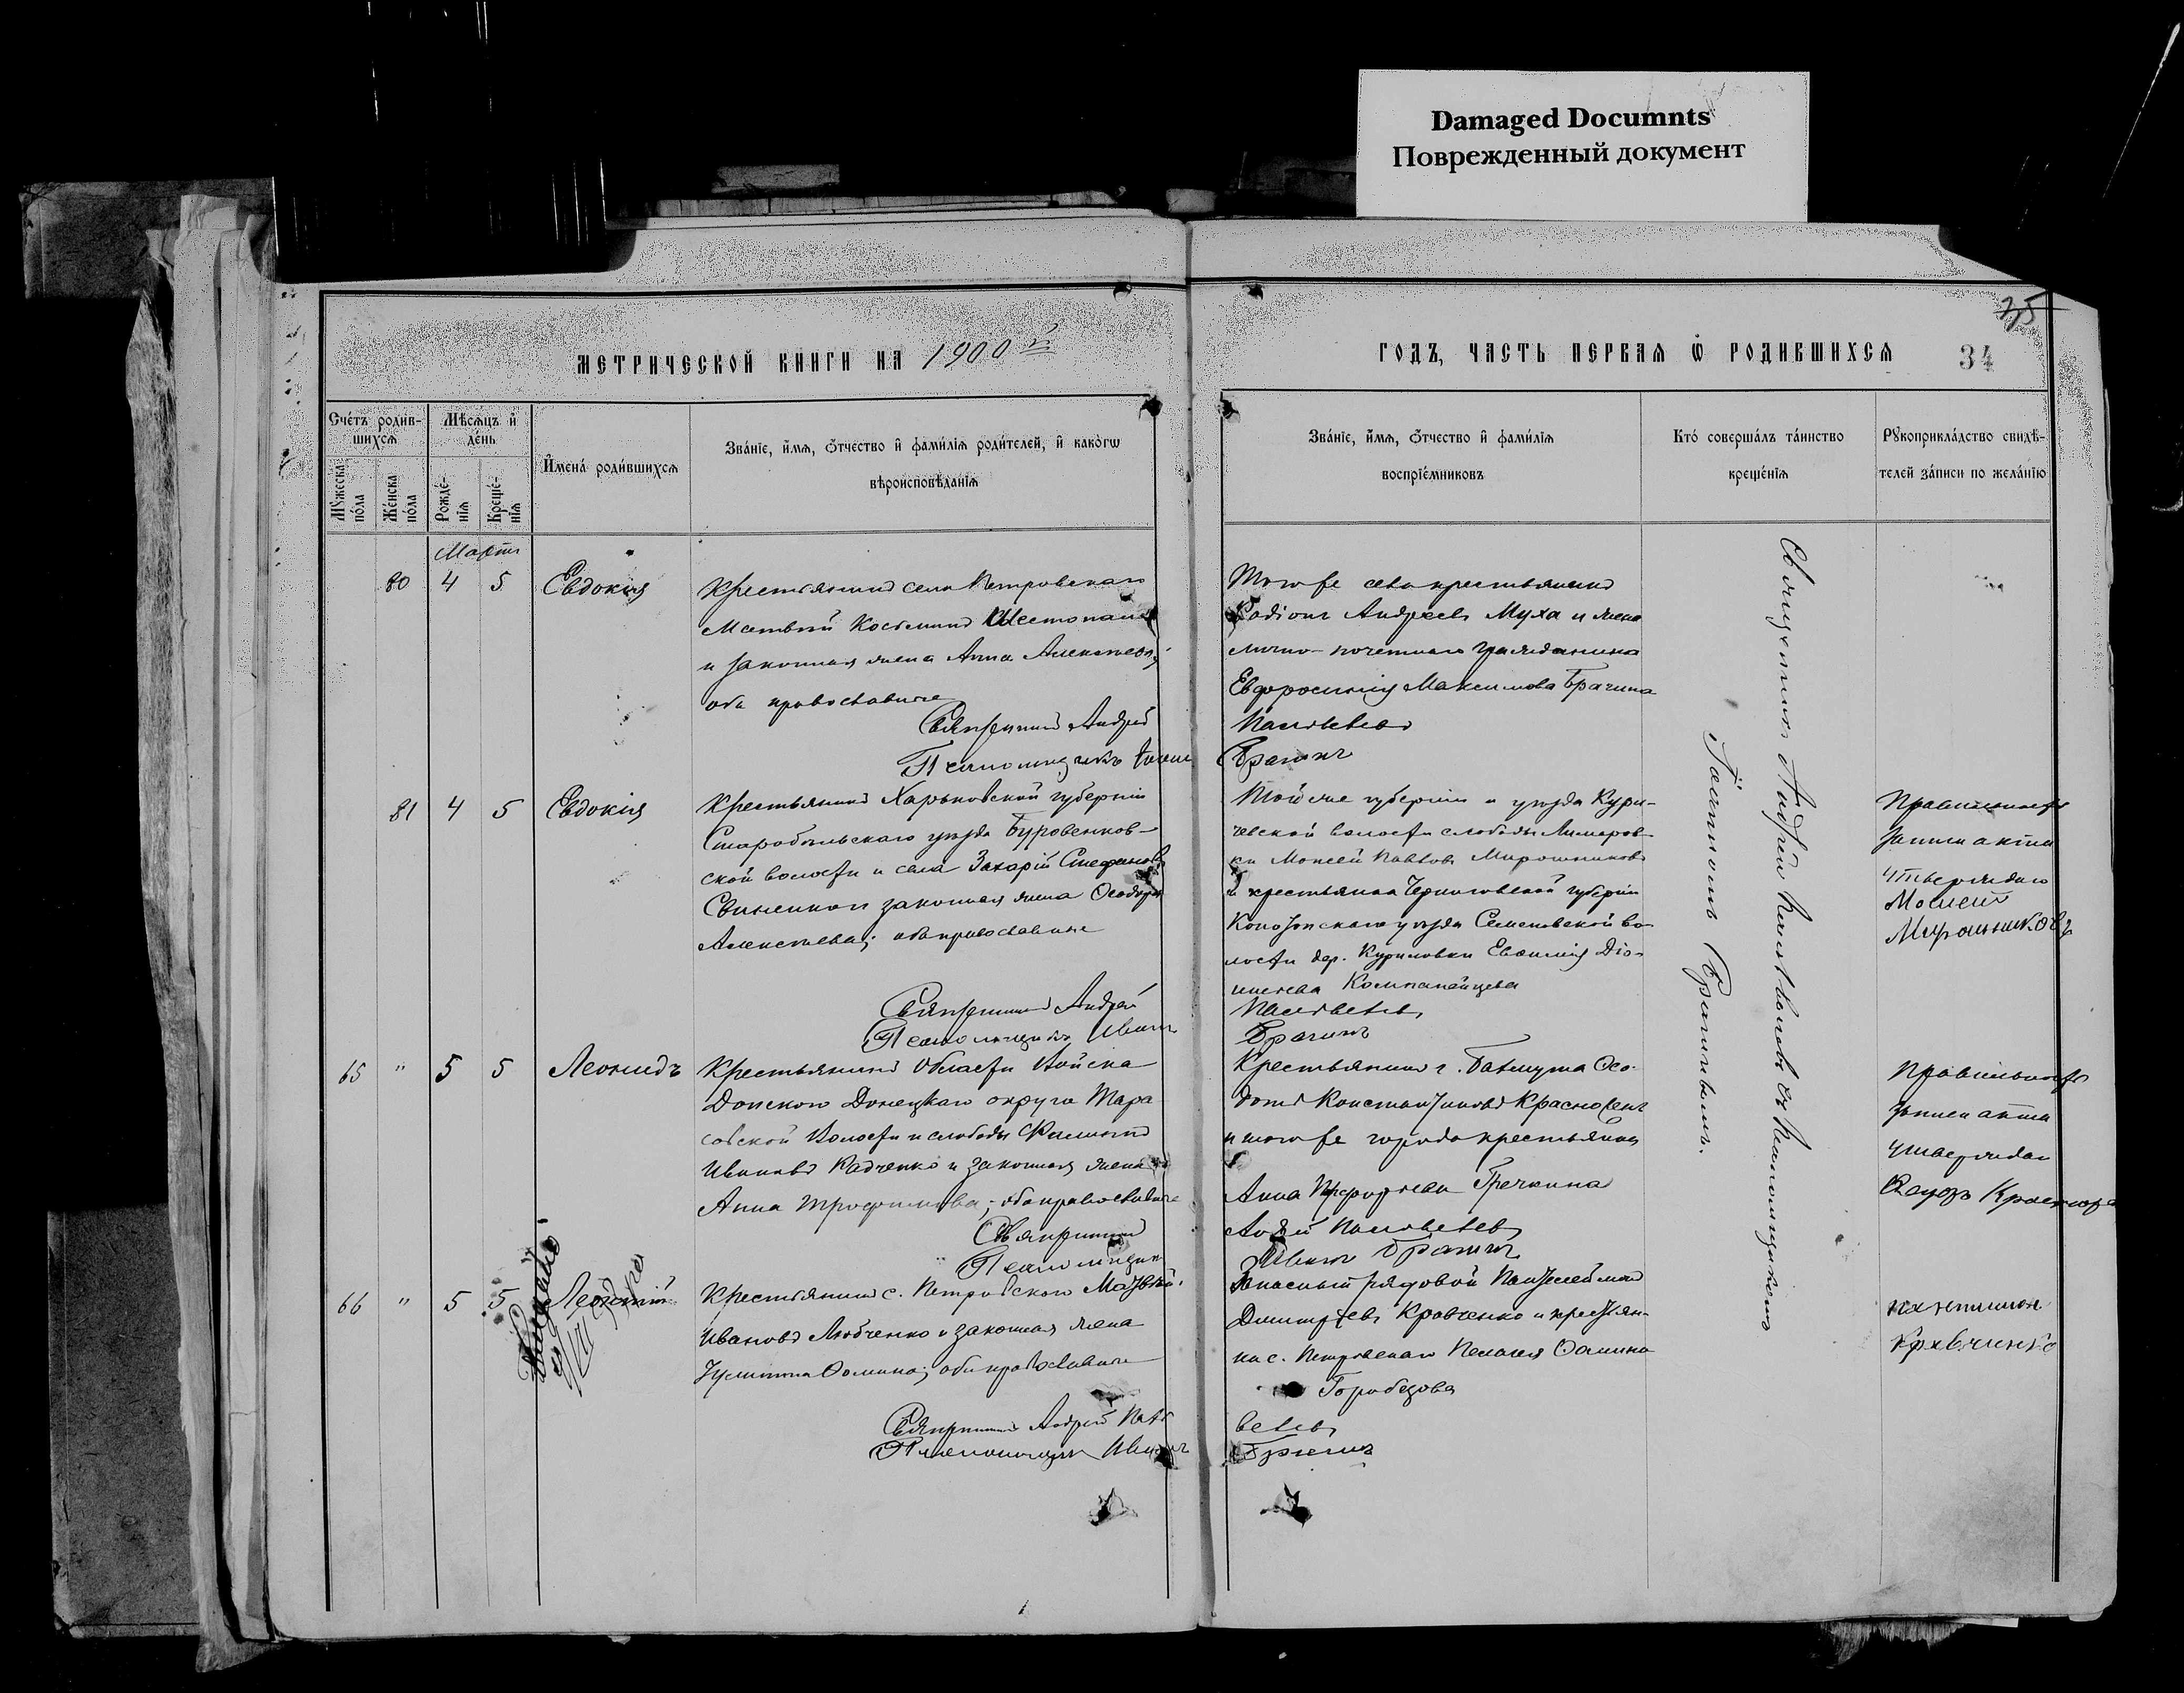 Damaged Documnts
Поврежденный документ
35
МЕТРИЧЕСКОЙ КНИГИ НА 1900 й
ГОДЪ, ЧАСТЬ ПЕРВАЯ Ѡ РОДИВШИХСЯ
34
Счетъ родив-
шихся
Мѣсяцъ и
день
Мужеска
пола
Женска
пола
Рожде-
нія
Креще-
нія
Имена родившихся
Званіе, имя, отчество и фамилія родителей, и какогѡ
вѣроисповѣданія
Званіе, имя, отчество и фамилія
воспріемниковъ
Кто совершалъ таинство
крещенія
Рукоприкладство свидѣ-
телей записи по желанію
Мартъ
80 4 5 Евдокія
Крестьянинъ села Петровскаго
Матвѣй Косьминъ
и законная жена Анна Алексѣева;
оба православные
Священникъ Андрей
Псаломщикъ
Того же села крестьянинъ
Родіонъ Андреевъ Муха и жена
лично-почетнаго гражданина
Евфросинія Максимова Брагина
Брагинъ
81 4 5 Евдокія
Крестьянинъ Харьковской губерніи
Старобѣльскаго уѣзда
ской волости и села Захарій Стефановъ
законная жена Ѳеодора
Алексѣева; оба православные
Священникъ Андрей
Псаломщикъ Иванъ
Той же губерніи и уѣзда Кури-
чевской волости слободы Лимаров-
ки Моисей Павловъ Мирошниковъ
и крестьянка Черниговской губерніи
Конотопскаго уѣзда Семеновской во-
лости дер. Куриловки Евфимія Діо-
нисіева Компанейцева
Брагинъ
Правильность
записи акта
утверждаю
Моисей
Мирошниковъ
65 " 5 5 Леонидъ
Крестьянинъ Области Войска
Донского Донецкаго округа Тара
совской Волости и слободы Филиппъ
Ивановъ Радченко и законная жена
Анна Трофимова; оба православные
Священникъ
Псаломщикъ
Крестьянинъ г. Бахмута Ѳео-
дотъ Константиновъ
и того же города крестьянка
Анна Гречкина
Андрей
Иванъ Брагинъ
Правильность
записи акта
утверждаю
66 " 5 5 Леонтій
Крестьянинъ с. Петровского Матвѣй
Ивановъ Любченко и законная жена
Іулитта Ѳомина; оба православные
Священникъ Андрей
Псаломщикъ Иванъ
Запасный рядовой Пантелеймонъ
Димитріевъ Кравченко и крестьян-
ка с. Петровскаго Пелагея Ѳомина
Горобцова
Брагинъ
Кравченко
Священникъ Андрей съ псаломщикомъ
Іоанномъ Брагинымъ.